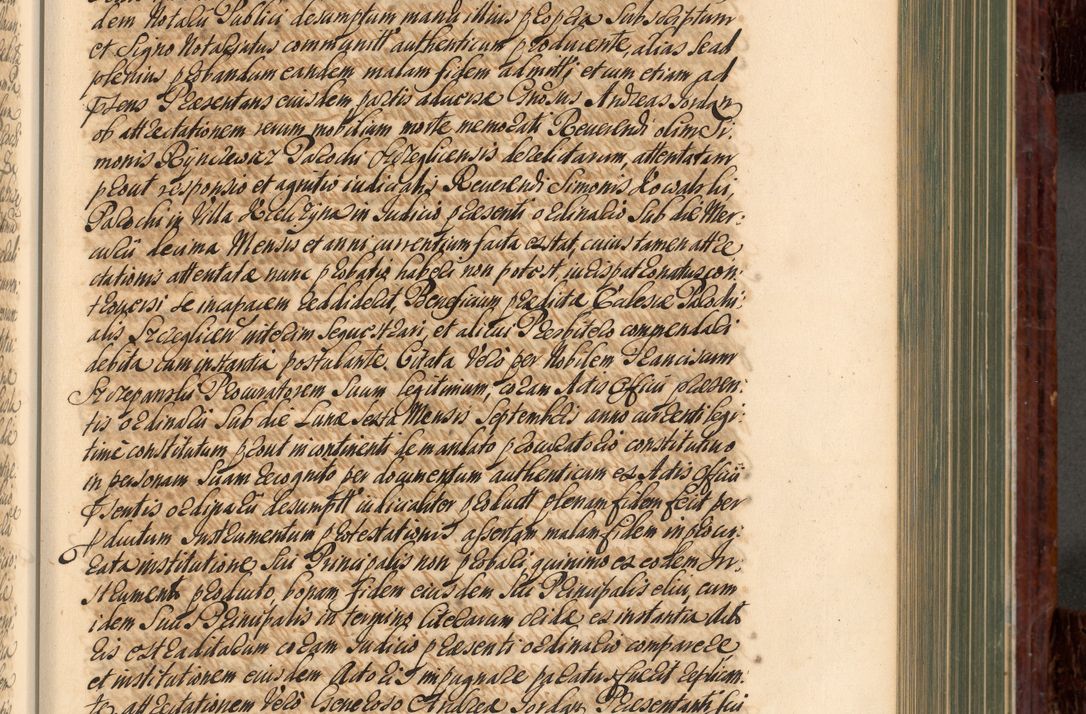 dem Notarii Publici desumptum manu illius propria Subscriptum
et Signo Notariatus communitt authenticum producente, alias se ad
plenius probandum eandem malam fidem admitti et cum etiam ad
Psens Præsentans eiusdem partis adversæ Gnosus Andreas Jordan
ob attrectationem rerum mobilium morte memorati Reverendi olim Si,
monis Rynciewicz Parochi Szczeglicensis derelictarum, attentatam
prout responsio et agnitio iudicialis Reverendi Simonis Kowalski,
Parochi in Villa in Iudicio præsenti ordinario Sub die Mer:
curii decima Mensis et anni currentium facta extat, cuius tamen attre
ctationis attentatæ nunc probatio haberi non potest, iurispatronatus con
troversi se incapacem reddiderit, Beneficium prædictæ Ecclesiæ Parochi
alis Szczeglicen interim Sequestrari, et alicui Presbitero commendari
debita cum instantia postulante. Citata Vero per Nobilem Franciscum
Szczepanski Procuratorem Suum legitimum, coram Actis Officii præsen:
tis ordinarii Sub die Lunæ sexta Mensis Septembris anno currenti legi:
time constitutum prout in continenti de mandato procuratorio constitutivo
in personam Suam recognito per documentum authenticum ex Actis Officii
Psentis ordinarii desumptt iudicialiter productt plenam fidem fecit per
pductum Instrumentum protestationis assertam malam fidem in procu:
rata institutione Sui Principalis non probari, quinimo ex eodem In:
strumento producto, bonam fidem eiusdem Sui Principalis elici, cum
idem Suus Principalis in termino literarum ex instantia
coram Iudicio præsenti ordinario comparere
et institutionem eiusdem Actorei impugnare paratus fuerit
attrectationem Vero Generoso Andreæ Jordan Præsentanti Sui